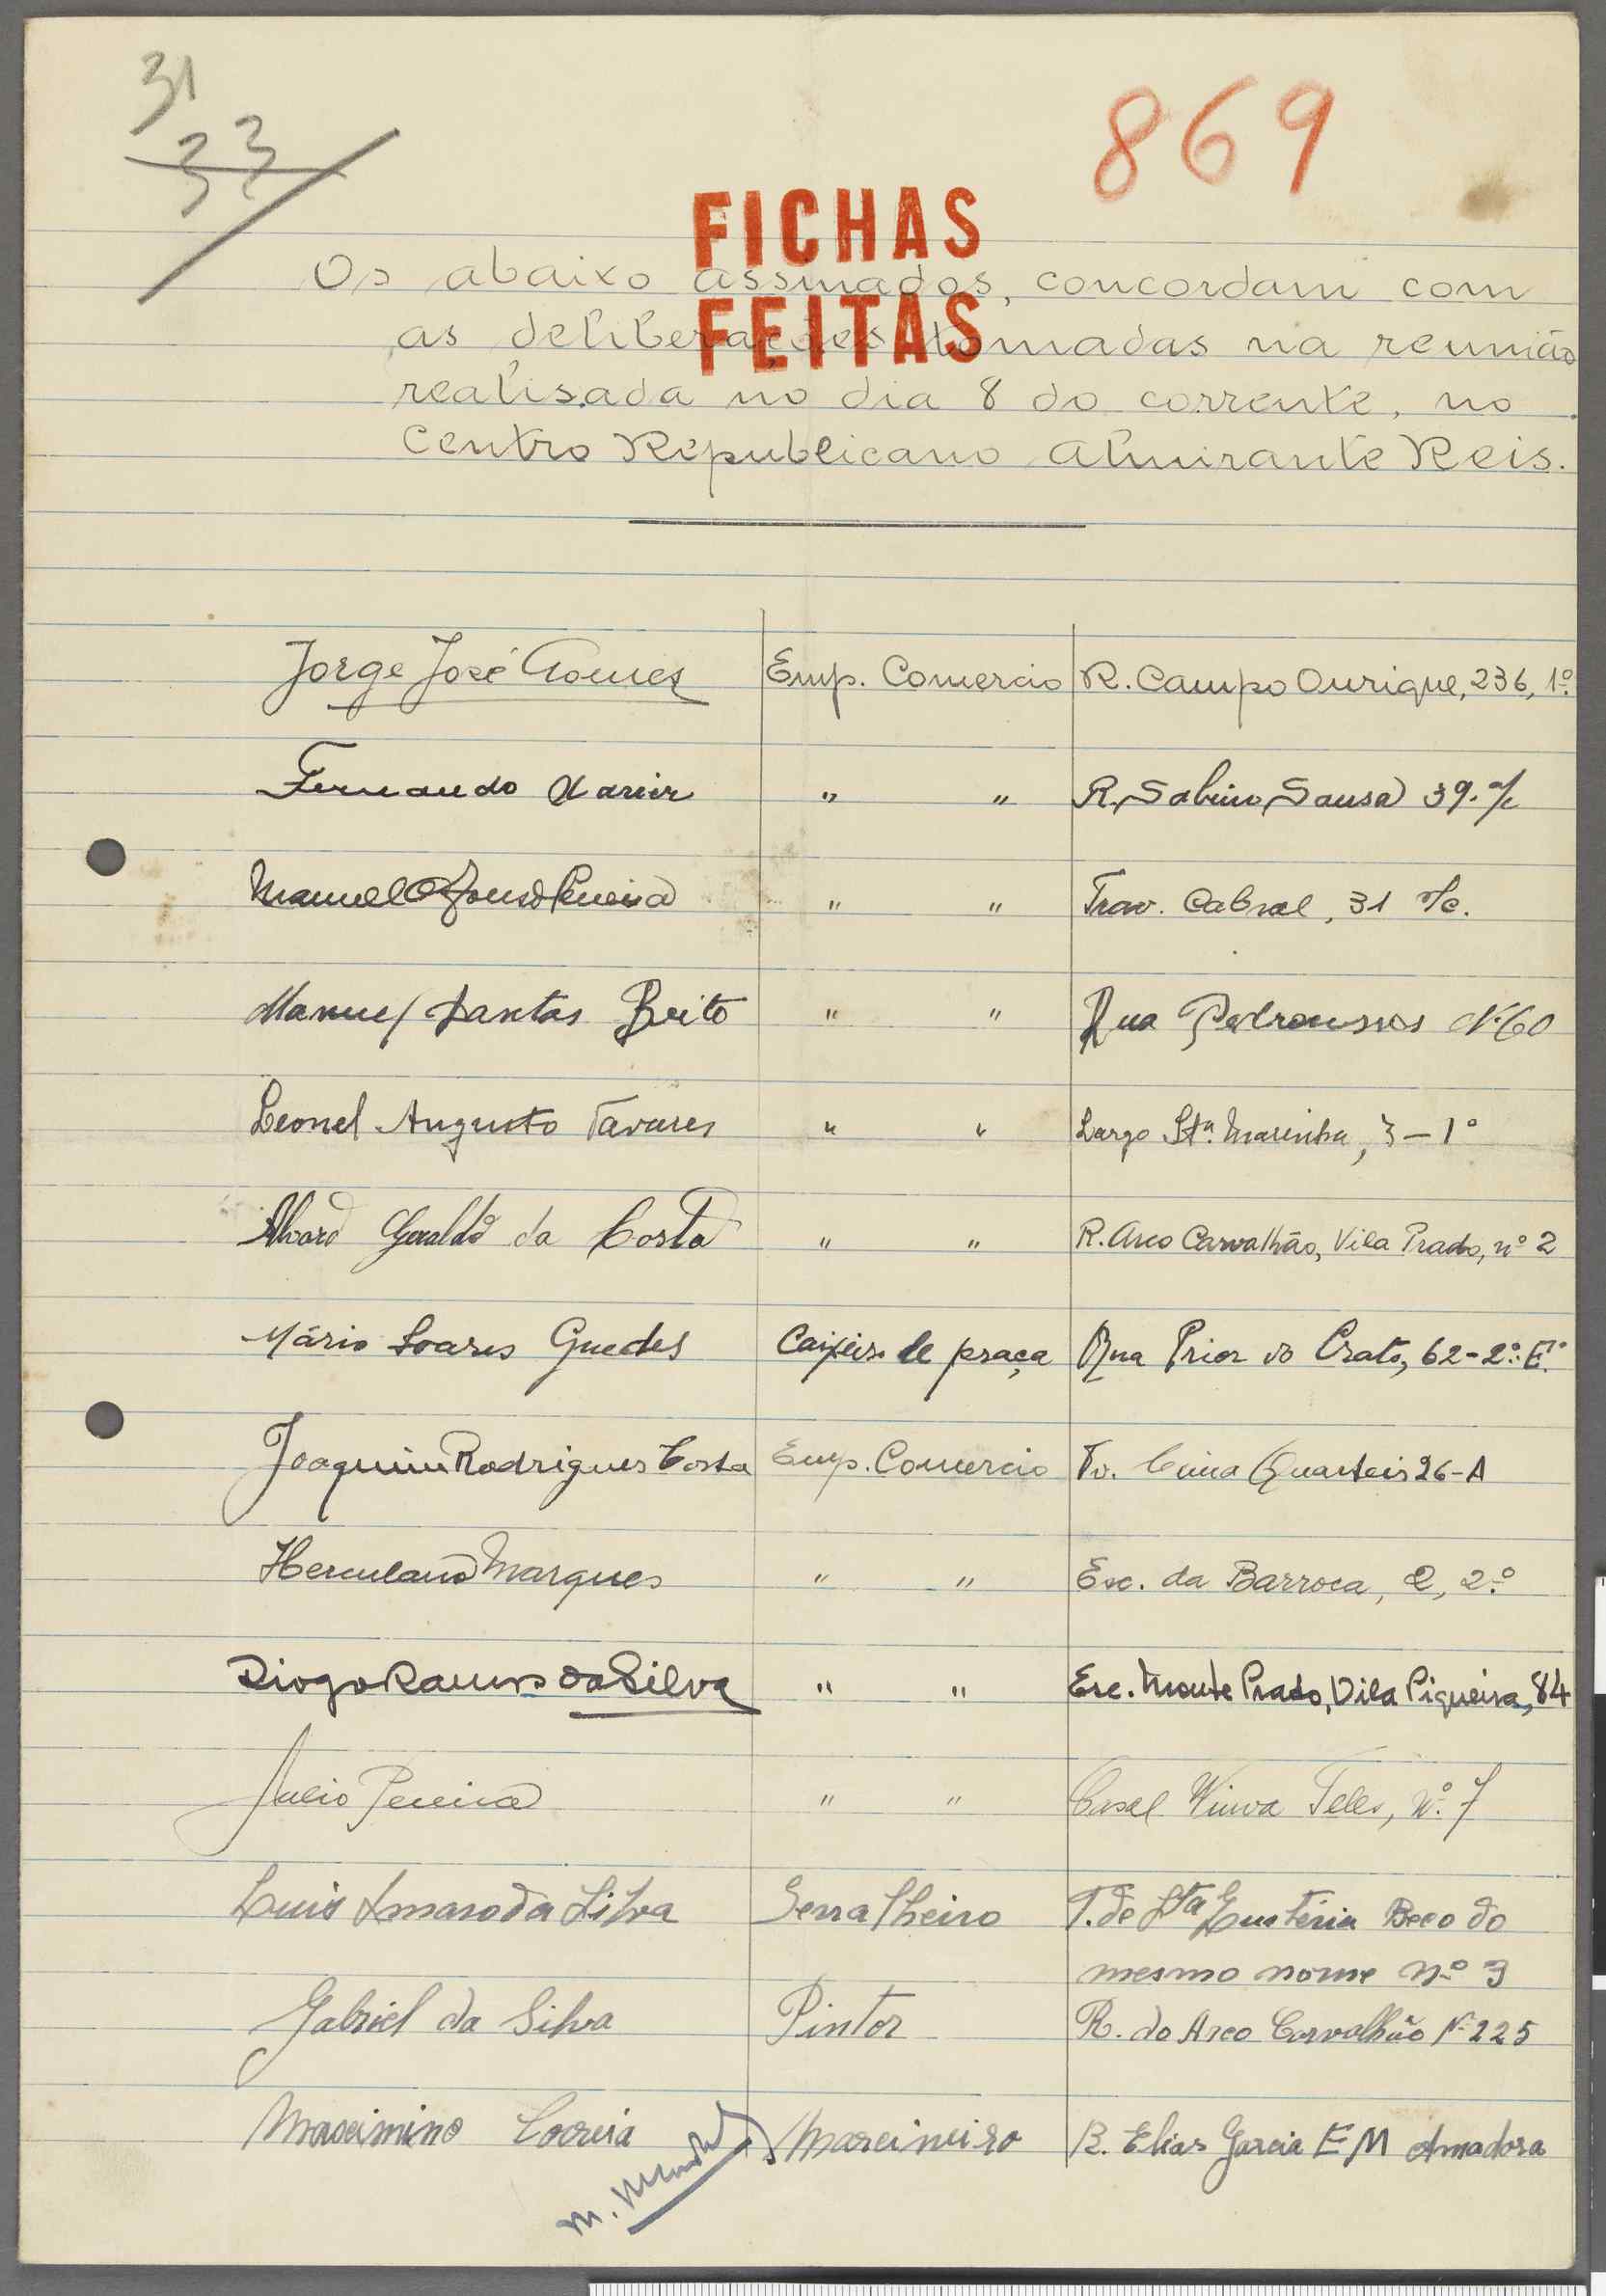 31
33
869
FICHAS
FEITAS
Os abaixo assinados, concordam com
as deliberações tomadas na reunião
realisada no dia 8 do corrente, no
Centro Republicano Almirante Reis.
Jorge José Gomes Emp. Comercio R. Campo Ourique, 236, 1º
Fernando Xavier " " R. Sabino Sousa 39. r/c
Manuel Afonso Pereira " " Trav. Cabral, 31 r/c.
Manuel Dantas Brito " " Rua Pedroussos Nº 60
Leonel Augusto Tavares " " Largo Stª. Marinha, 3-1º
Alvaro Geraldo da Costa " " R. Arco Carvalhão, Vila Prado, nº 2
Mário Soares Guedes Caixeiro de praça Rua Prior do Crato, 62-2º. E.
Joaquim Rodrigues Costa Emp. Comercio Tv. Cima Quarteis 26-A
Herculano Marques " " Esc. da Barroca, 2, 2º
Diogo Ramos da Silva " " Esc. Monte Prado, Vila Piqueira, 84
Julio Pereira " " Casal Viuva Teles, Nº. 7
Luis Amaro da Silva Serralheiro T. de Sta Quitéria Beco do
mesmo nome nº 3
Gabriel da Silva Pintor R. do Arco Carvalhão Nº 225
Maximino Correia Marcineiro R. Elias Garcia E M Amadora
M.